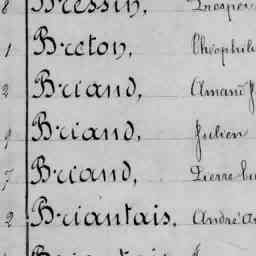 8 Bressin, Prosper
1 Breton, Théophile
2 Briand, Amand J
9 Briand, Julien
7 Briand, Pierre
2 Briantais, André